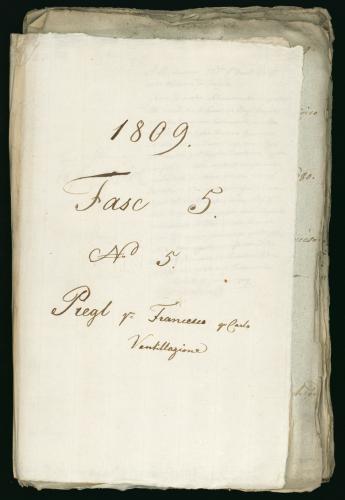 1809.
Fasc 5.
No 5.
Pregl qm Francesco q Carlo
Ventillazione